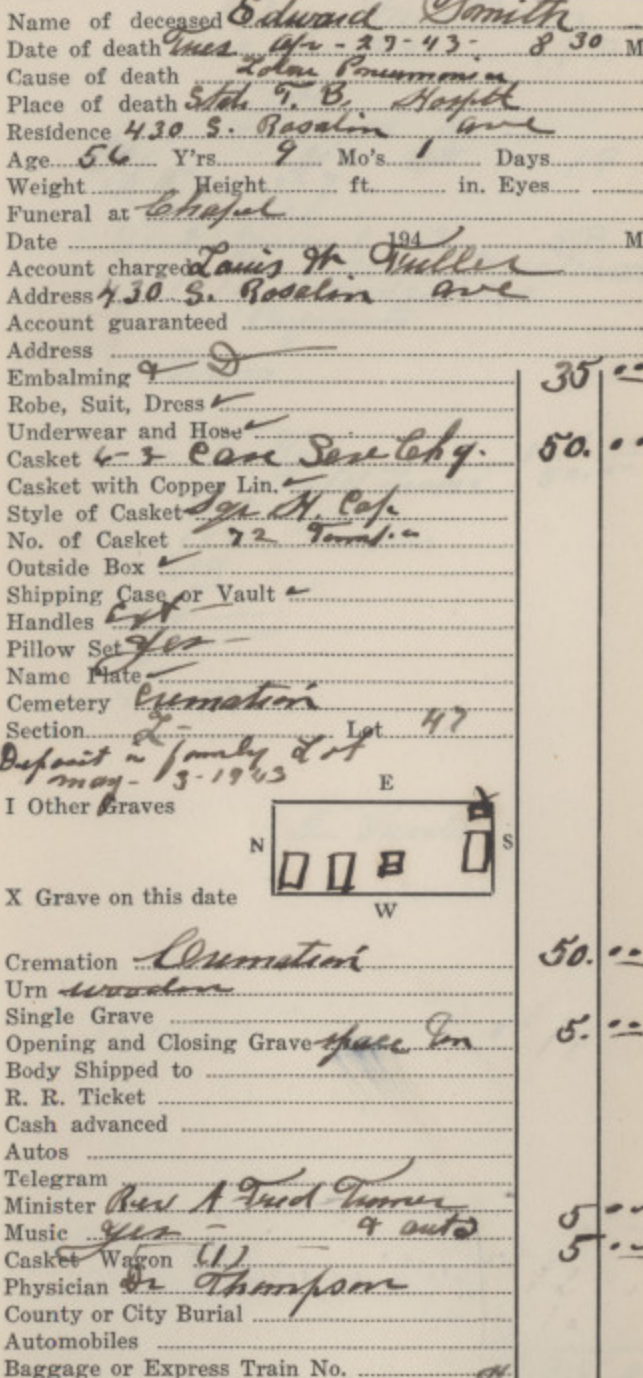 Name of deceased Edward Smith
Date of death Tues Apr - 27-43- 8 30 M
Cause of death Lobar Pneumonia
Place of death State T. B. Hospital
Residence 430 S. Rosalin ave
Age 56 Y'rs. 9 Mo's 1 Days
Weight Height ft. in. Eyes
Funeral at Chapel
Date 194 M
Account charged Louis M Fuller
Address 430 S. Rosalin ave
Account guaranteed
Address
Embalming & D 35
Robe, Suit, Dress ✓
Underwear and Hose ✓
Casket 6-3 Chg. 50.
Casket with Copper Lin. ✓
Style of Casket Sqr
No. of Casket 72
Outside Box ✓
Shipping Case or Vault ✓
Handles Ext
Pillow Set Yes
Name Plate
Cemetery Cremation
Section L Lot 47
Deposit in family Lot
may - 3-1943
E
I Other Graves
N S
X Grave on this date
W
Cremation Cremation 50.
Urn wooden
Single Grave
Opening and Closing Grave space 5.
Body Shipped to
R. R. Ticket
Cash advanced
Autos
Telegram
Minister Rev A Fred Turner 5
Music Yes - & auto 5
Casket Wagon (1)
Physician Dr Thompson
County or City Burial
Automobiles
Baggage or Express Train No.